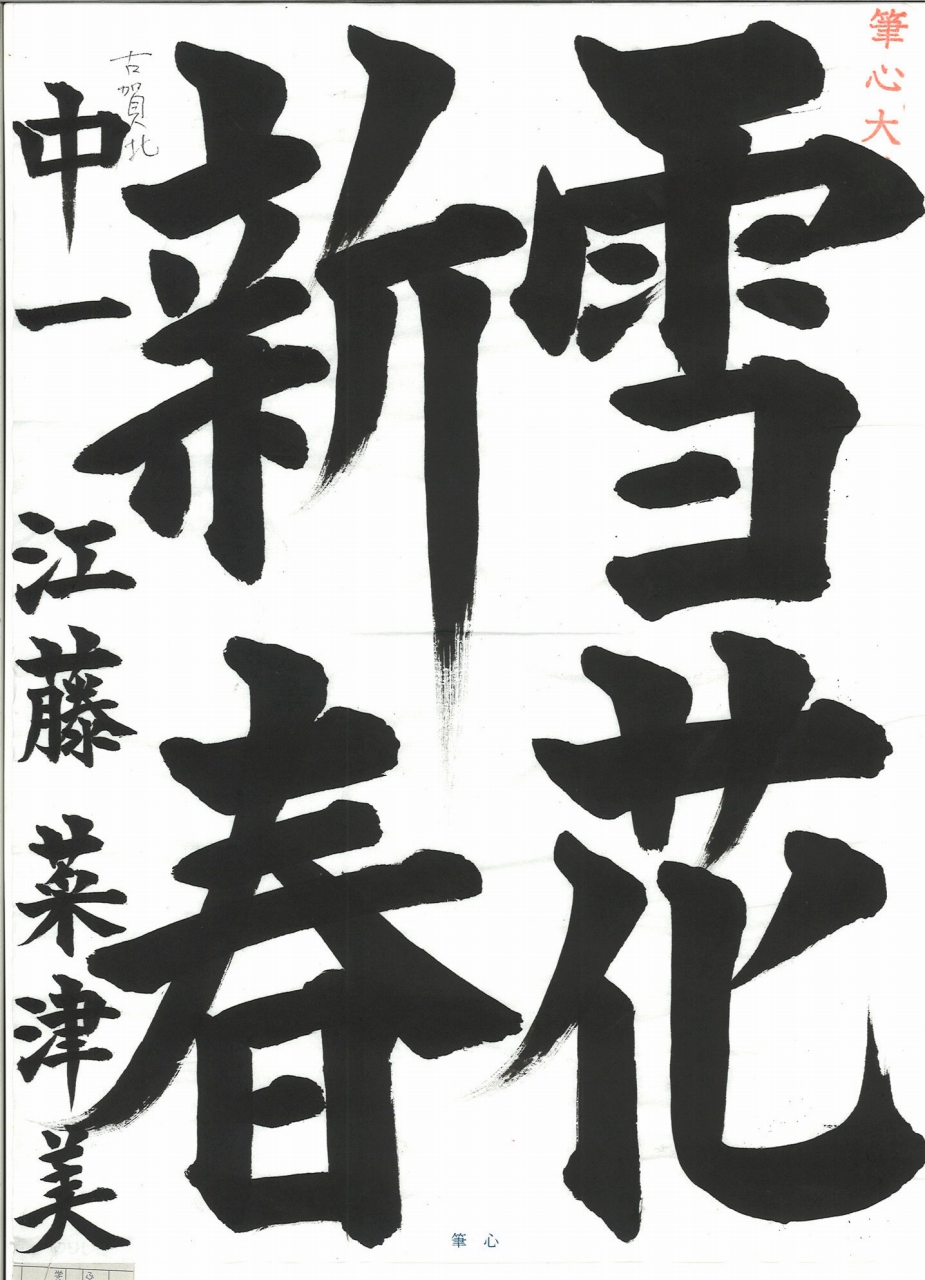 筆心大
雪花
新春
古賀北
中一 江藤 菜津美
筆心